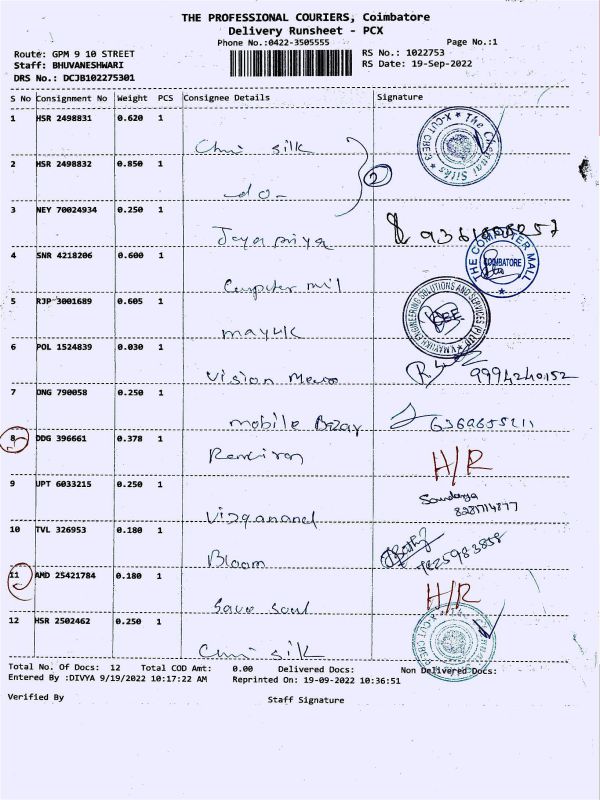 THE PROFESSIONAL COURIERS, Coimbatore
Delivery Runsheet - PCX
Phone No.:0422-3505555
Page No.:1
Route: GPM 9 10 STREET
RS No.: 1022753
Staff: BHUVANESHWARI
RS Date: 19-Sep-2022
DRS No.: DCJB102275301
S No Consignment No Weight PCS Consignee Details Signature
1 HSR 2498831 0.620 1
silk
The Chennai Silks X-CUT CBE-3
2 HSR 2498832 0.850 1
do- 2
3 NEY 70024934 0.250 1
Jayapriya
4 SNR 4218206 0.600 1
THE COMPUTER MALL COIMBATORE
5 RJP 3001689 0.605 1
6 POL 1524839 0.030 1
Vision 9994240152
7 DNG 790058 0.250 1
mobile Bazay
8 DDG 396661 0.378 1
H/R
9 UPT 6033215 0.250 1
Soundarya
10 TVL 326953 0.180 1
Bloom
11 AMD 25421784 0.180 1
Save soul H/R
12 HSR 2502462 0.250 1
silk
Total No. Of Docs: 12 Total COD Amt: 0.00 Delivered Docs: Non Delivered Docs:
Entered By :DIVYA 9/19/2022 10:17:22 AM Reprinted On: 19-09-2022 10:36:51
Verified By Staff Signature